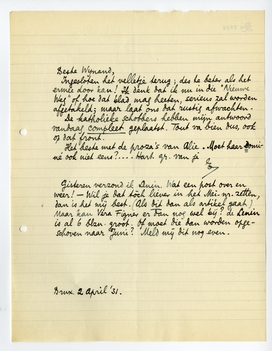 Beste Wijnand,
Ingesloten het velletje terug; des te beter als het
ermee door kan! Ik denk dat ik nu in die "Nieuwe
Weg" of hoe dat blad mag heeten, serieus zal worden
afgetakeld; maar laat ons dat rustig afwachten.
De katholieke schobbers hebben mijn antwoord
vandaag compleet geplaatst. Tout va bien dus, ook
op dat front.
Het beste met de proza's van Alie. Moet haar Domi-
né ook niet eens?.... Hart. gr. van je
Gisteren verzond ik Lenin. Wat een post over en
weer! - Wil je dat tóch liever in het Mei-nr. zetten,
dan is het mij best. (Als dit dan als artikel gaat)
Maar kan Vera Figner er dan nog wel bij? de Lenin
is al 6 blzn. groot. of moet die dan worden opge-
schoven naar Juni? Meld mij dit nog even.
Brux. 2 April '31.